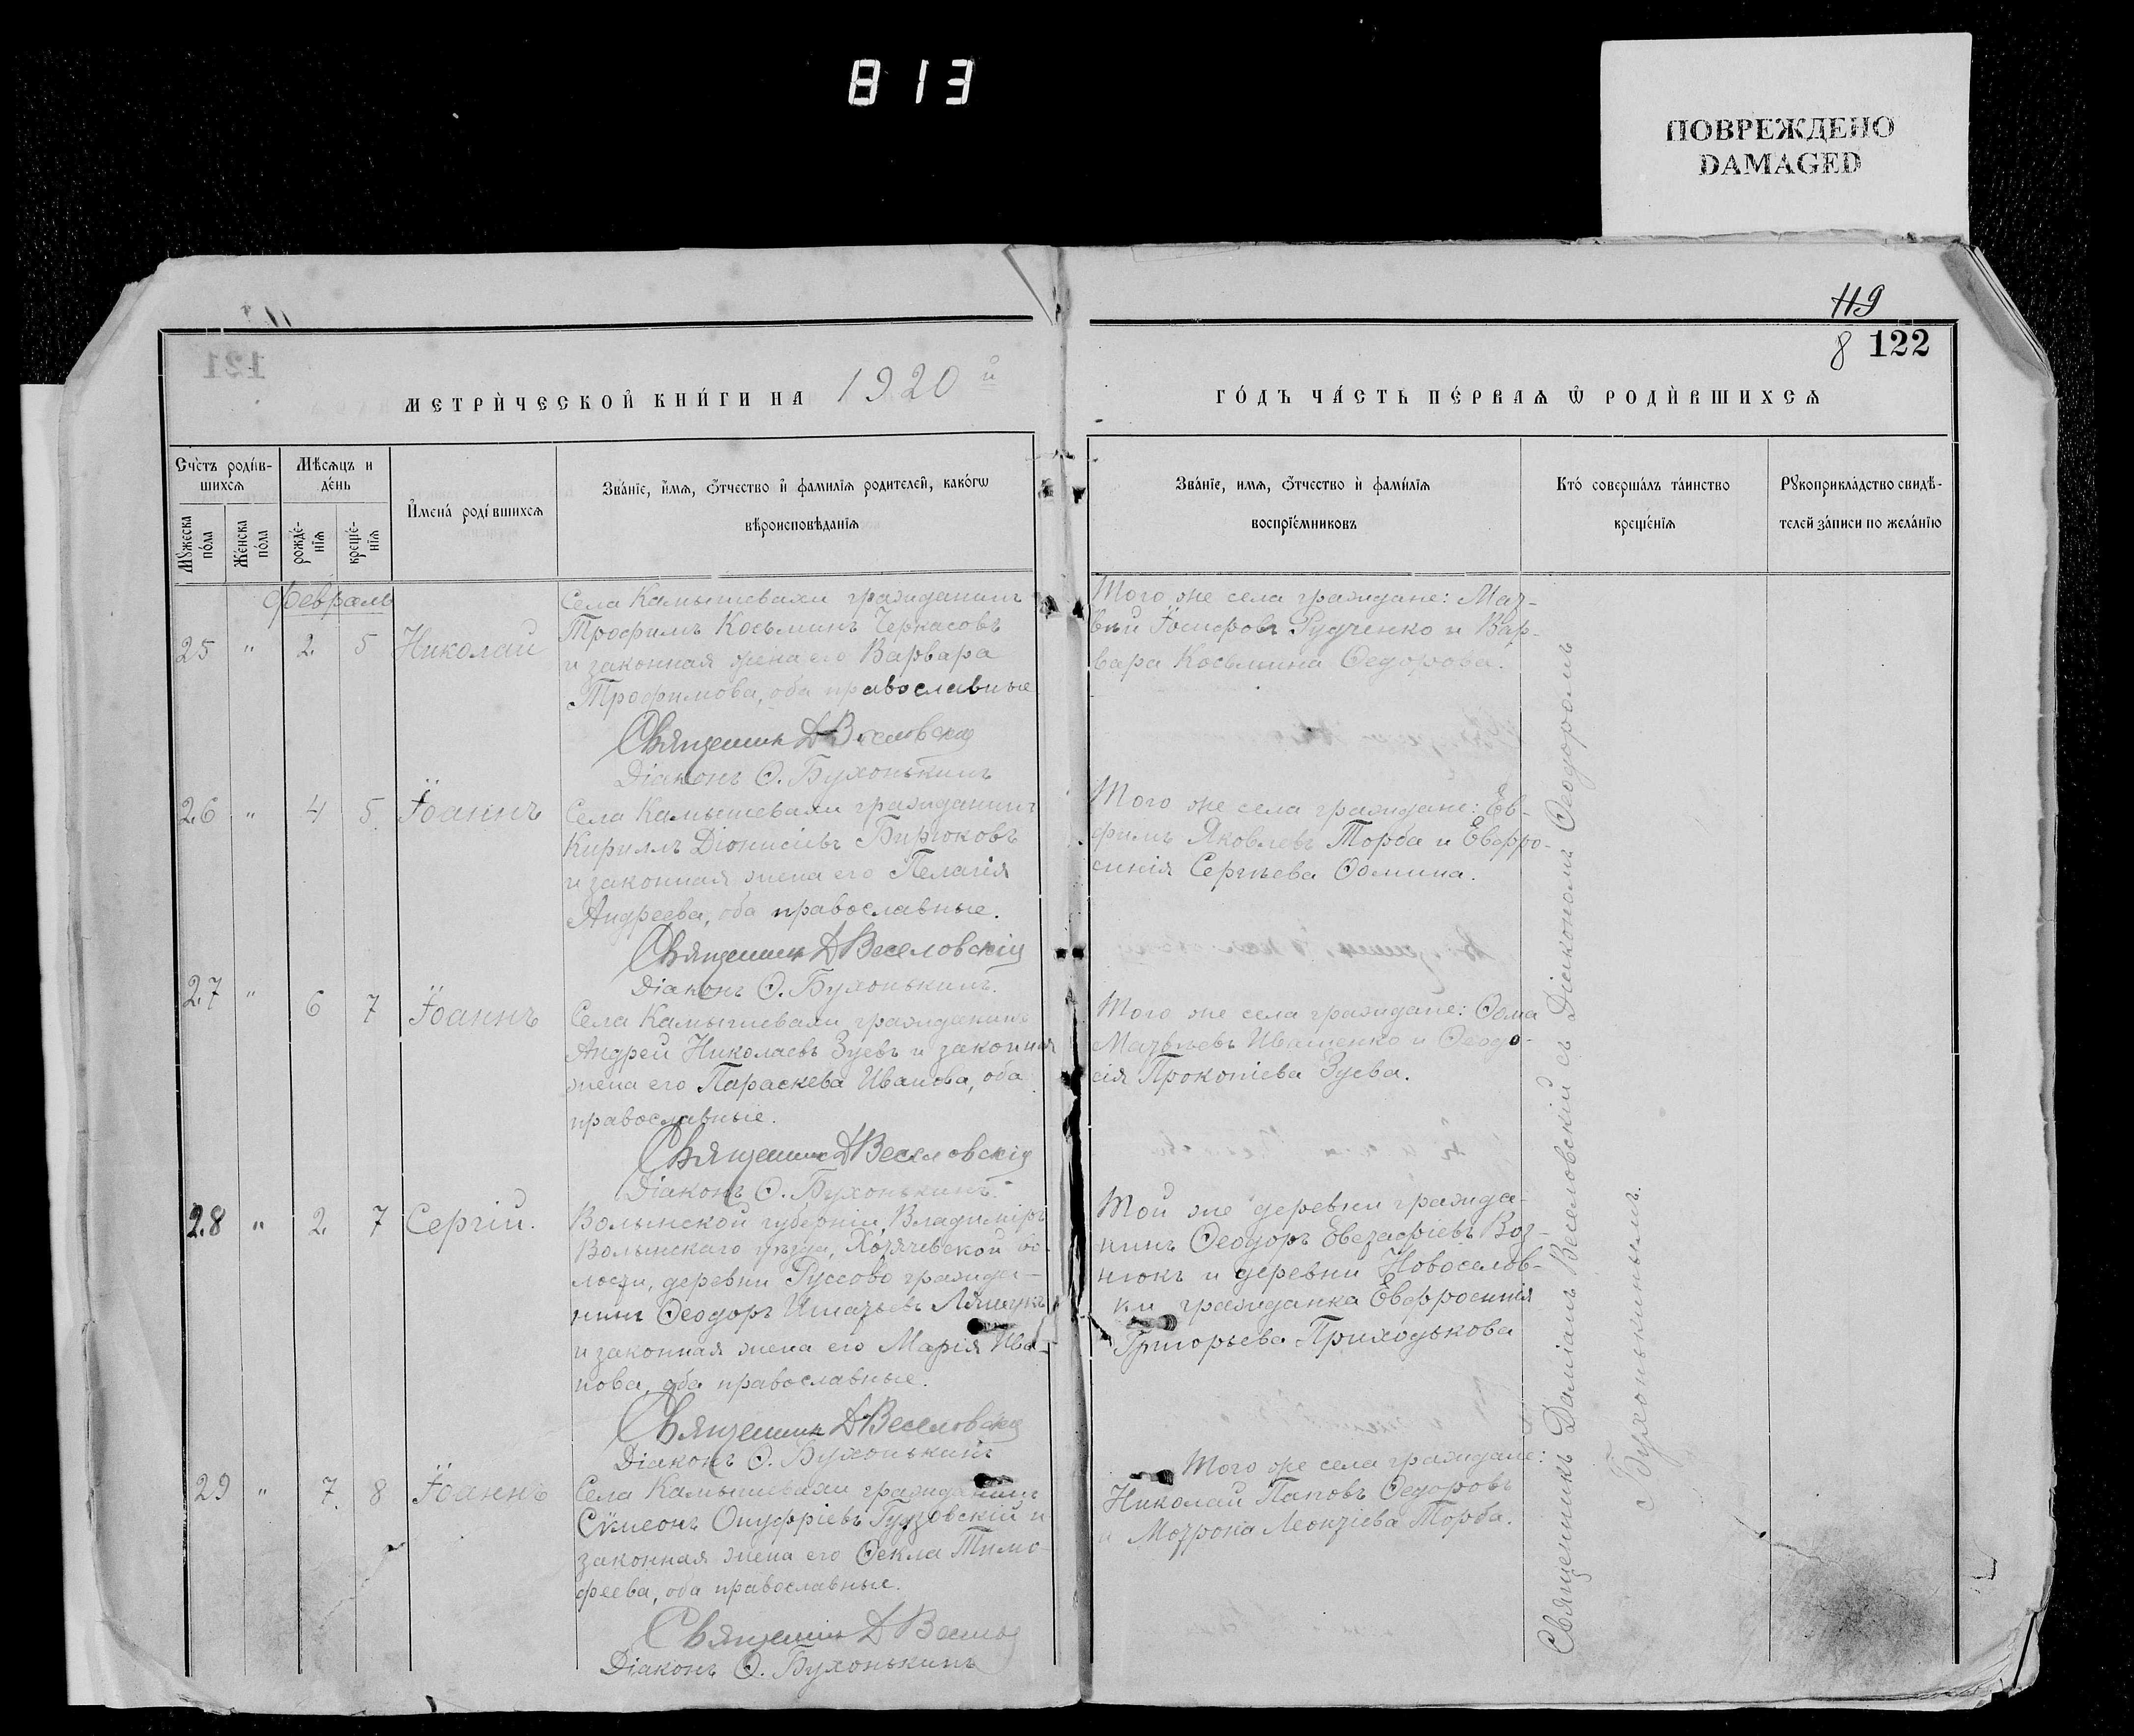 813
ПОВРЕЖДЕНО
DAMAGED
119
8 122
МЕТРИ́ЧЕСКОЙ КНИ́ГИ НА 1920 й
ГО́ДЪ ЧА́СТЬ ПЕ́РВАѦ Ѿ РОДИ́ВШИХСѦ
Счѐтъ роди́в-
шихсѧ
Мѣ́сѧцъ и
де́нь
И҆мена̀ роди́вшихсѧ
Зва́нїе, и҆́мѧ, ѻ҆́тчество и҆ фами́лїѧ родителей, како́гѡ
вѣроисповѣ́данїѧ
Мꙋжеска
по́ла
Же́нска
по́ла
рожде́-
нїѧ
креще́-
нїѧ
Зва́нїе, имѧ, ѻ҆́тчество и҆ фами́лїѧ
воспрїе́мниковъ
Кто́ соверша́лъ та́инство
креще́нїѧ
Рꙋкоприкла́дство свидѣ́-
телей за́писи по жела́нїю
Февраль
25 " 2 5 Николай
Села Камышевахи гражданинъ
Трофимъ Косьминъ Черкасовъ
и законная жена его Варвара
Трофимова, оба православные
Священник Д Веселовскій
Діаконъ Ѳ. Бухонькинъ
Того же села граждане: Мат-
вей Іосифовъ Рудченко и Вар-
вара Косьмина Ѳедорова.
26 " 4 5 Іоаннъ
Села Камышевахи гражданинъ
Кириллъ Діонисіевъ Бирюковъ
и законная жена его Пелагія
Андреева, оба православные.
Священник Д Веселовскій
Діаконъ Ѳ. Бухонькинъ.
Того же села граждане: Ев-
фимъ Яковлевъ Торба и Евфро-
синія Сергѣева Ѳомина.
27 " 6 7 Іоаннъ
Села Камышевахи гражданинъ
Андрей Николаевъ Зуевъ и законная
жена его Параскева Иванова, оба
православные.
Священник Д Веселовскій
Діаконъ Ѳ. Бухонькинъ.
Того же села граждане: Ѳома
Матвѣевъ Иващенко и Ѳеодо-
сія Прокопіева Зуева.
28 " 2 7 Сергій.
Волынской губерніи, Владиміръ
Волынскаго уѣзда, во-
лости, деревни Руссово гражда-
нинъ Ѳеодоръ Игнатьевъ
и законная жена его Марія Ива-
нова, оба православные.
Священник Д Веселовскій
Діаконъ Ѳ. Бухонькинъ
Той же деревни гражда-
нинъ Ѳеодоръ Евстафіевъ Воз-
нюкъ и деревни Новоселов-
ки гражданка Евфросинія
Григорьева Приходькова
29 " 7 8 Іоаннъ
Села Камышевахи гражданинъ
Сѵмеонъ Онуфріевъ Гудзовскій и
законная жена его Ѳекла Тимо-
феева, оба православные.
Священник Д Весель
Діаконъ Ѳ. Бухонькинъ
Того же села граждане:
Николай Паповъ Ѳедоровъ
и Матрона Леонтіева Торба.
Священникъ Даміанъ Веселовскій съ Діакономъ Ѳеодоромъ
Бухонькинымъ.